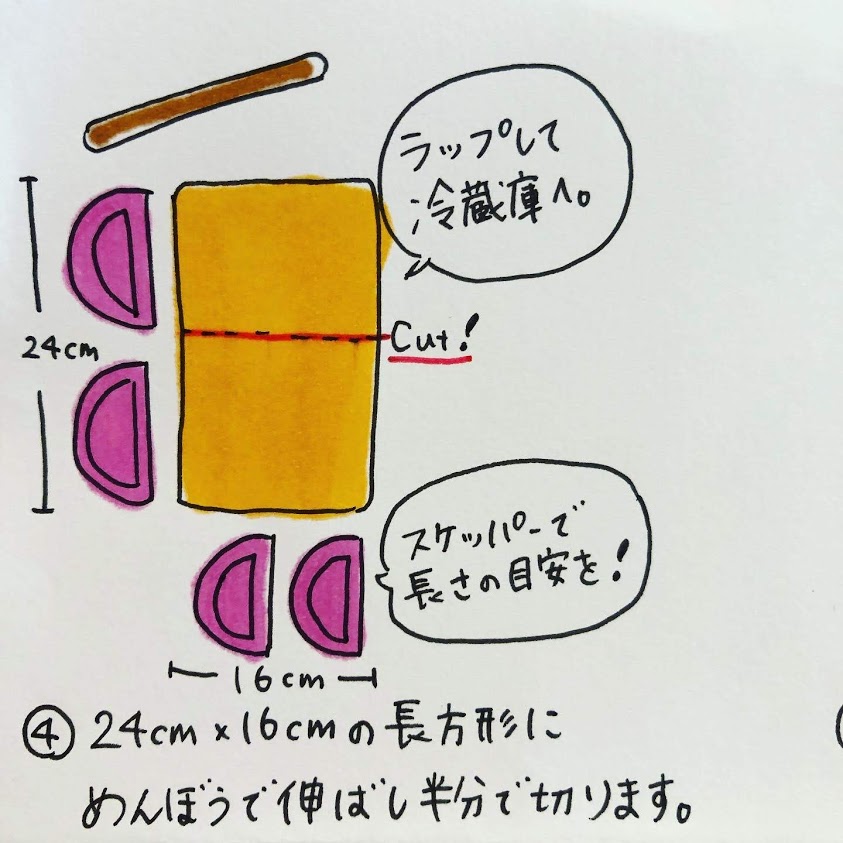 ラップして
冷蔵庫へ。
24cm
Cut!
スケッパーで
長さの目安を!
16cm
④ 24cm×16cmの長方形に
めんぼうで伸ばし半分で切ります。